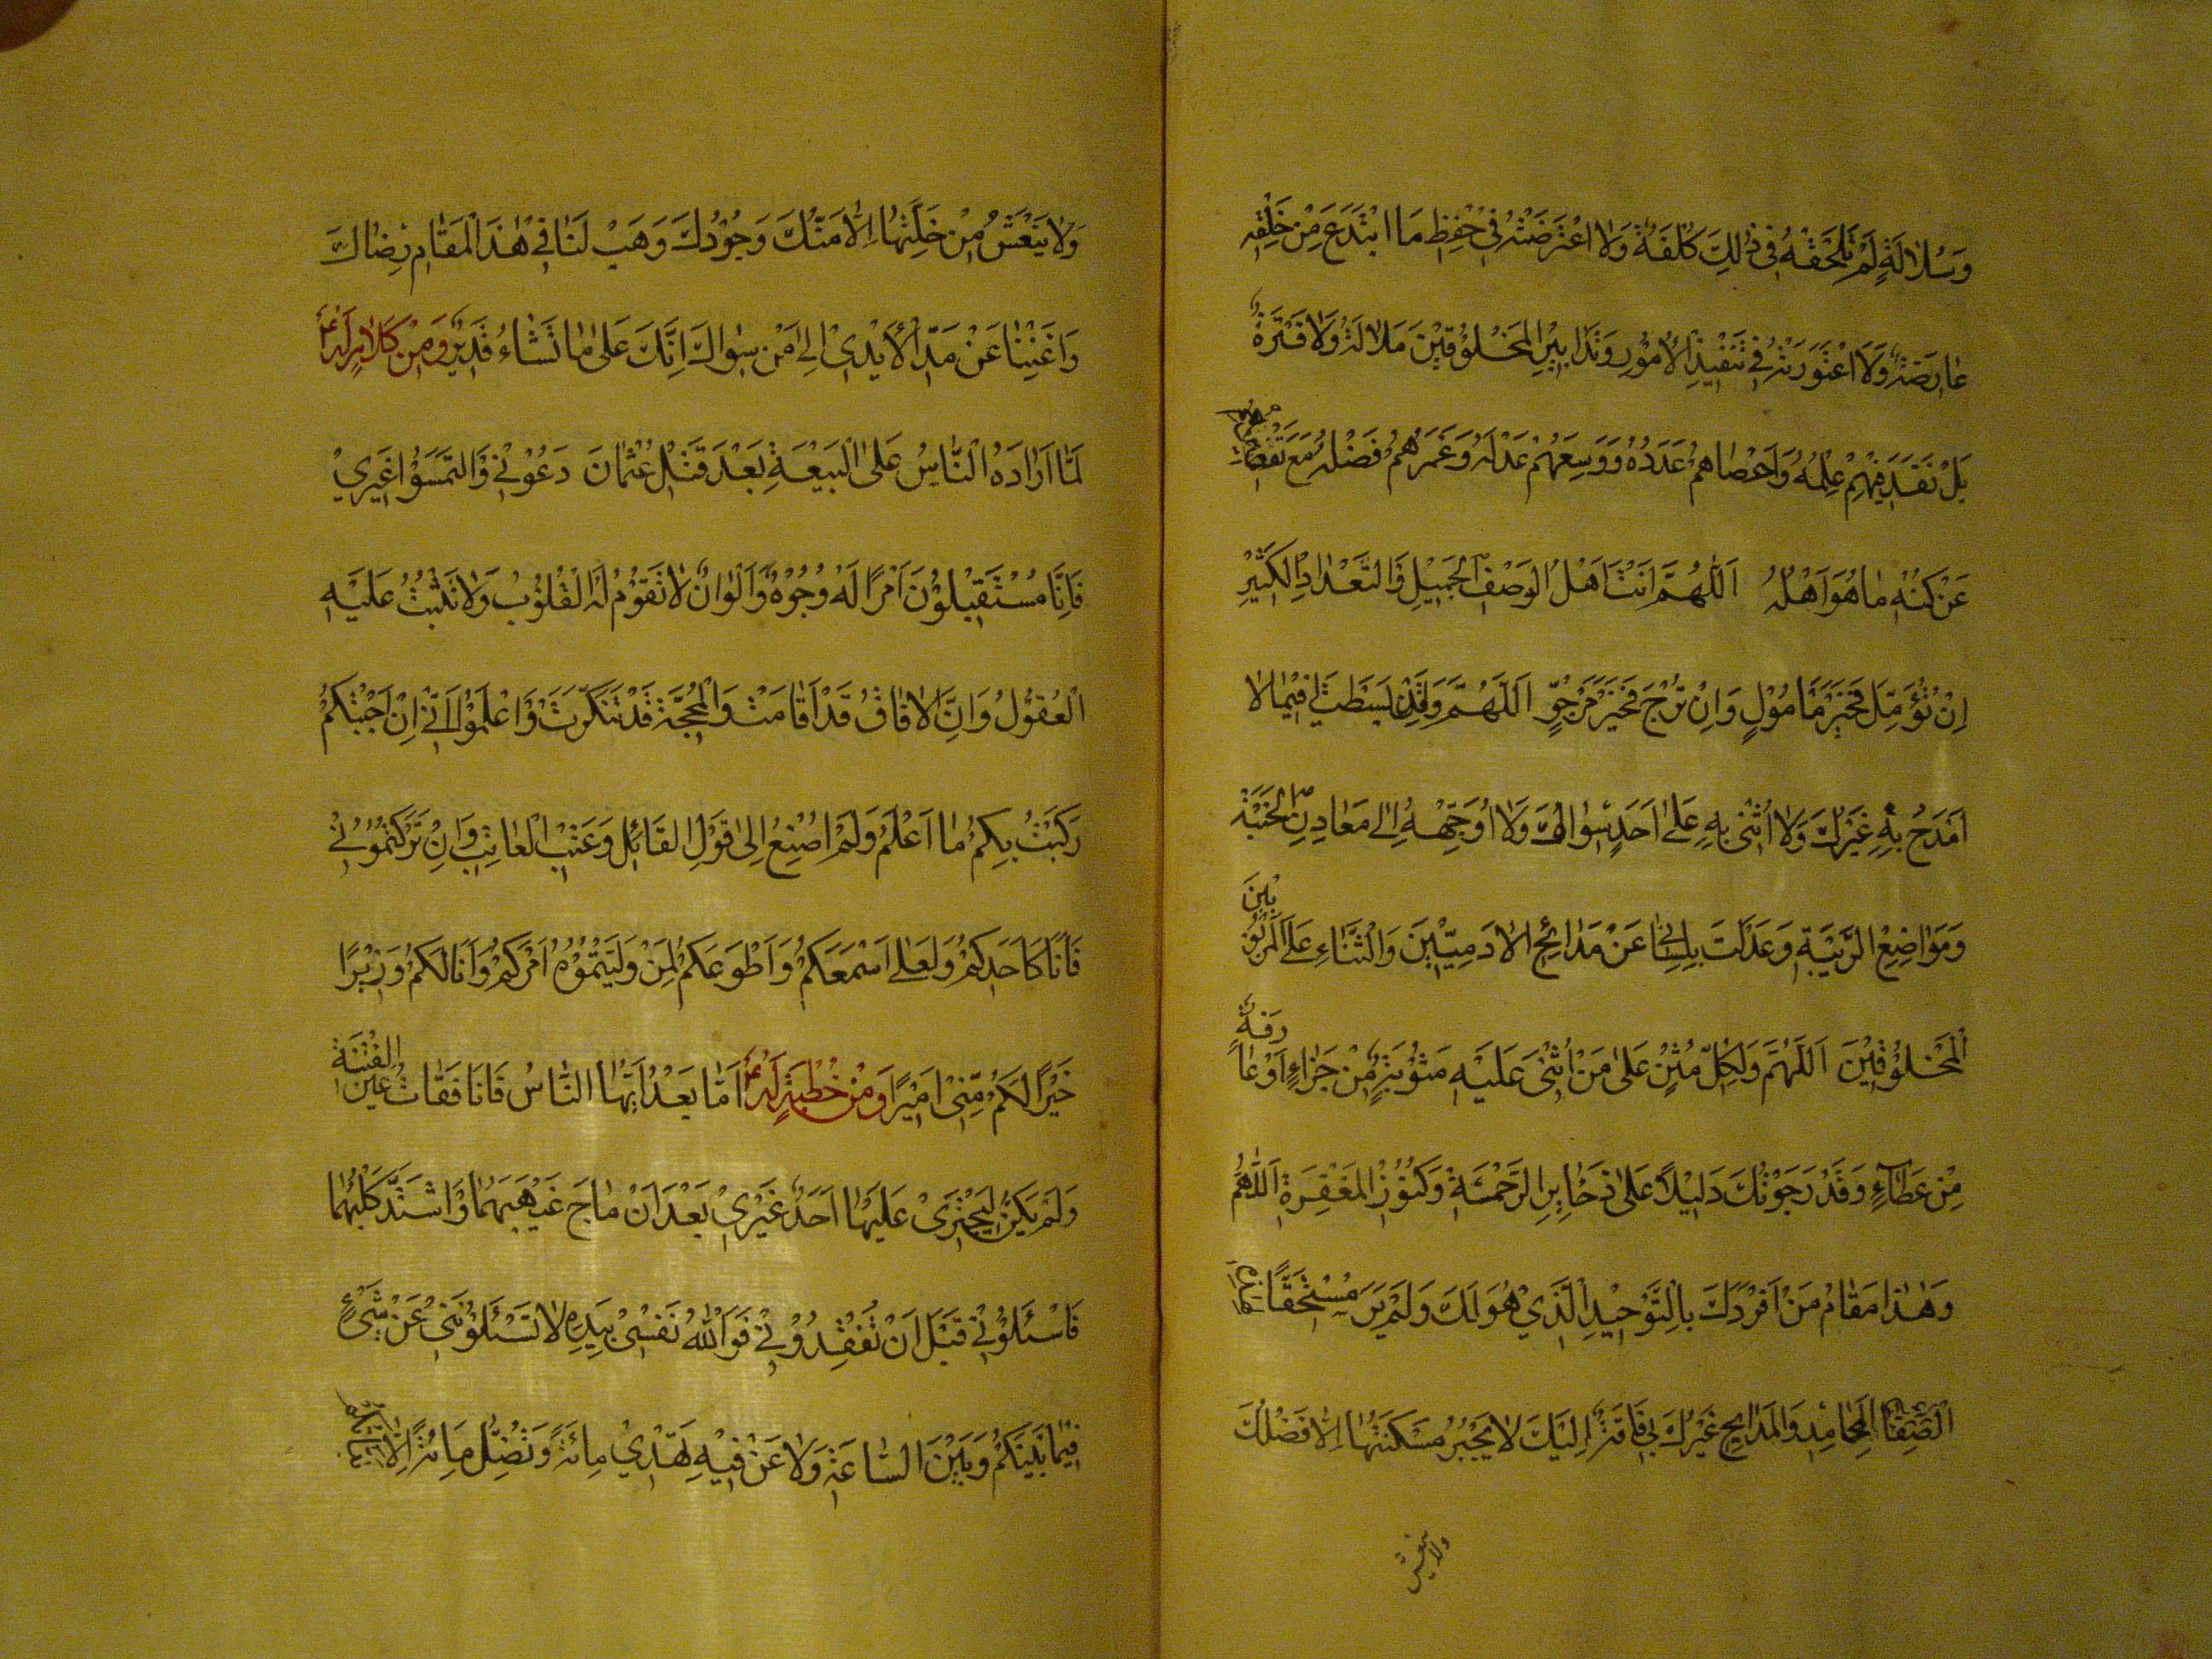 وَسُلَالَةٍ لَمْ تَلْحَقْهُ فِي ذٰلِكَ كُلْفَةٌ وَلَا اعْتَرَضَتْهُ فِي حِفْظِ مَا ابْتَدَعَ مِنْ خَلْقِهِ
عَارِضَةٌ وَلَا اعْتَوَرَتْهُ فِي تَنْفِيذِ الْأُمُورِ وَتَدَابِيرِ الْمَخْلُوقِينَ مَلَالَةٌ وَلَا فَتْرَةٌ
بَلْ نَفَذَ فِيهِمْ عِلْمُهُ وَأَحْصَاهُمْ عَدَدُهُ وَوَسِعَهُمْ عَدْلُهُ وَغَمَرَهُمْ فَضْلُهُ مَعَ تَقْصِيرِهِمْ
عَنْ كُنْهِ مَا هُوَ أَهْلُهُ اَللّٰهُمَّ أَنْتَ أَهْلُ الْوَصْفِ الْجَمِيلِ وَالتَّعْدَادِ الْكَثِيرِ
إِنْ تُؤَمَّلْ فَخَيْرُ مَأْمُولٍ وَإِنْ تُرْجَ فَخَيْرُ مَرْجُوٍّ اَللّٰهُمَّ وَقَدْ بَسَطْتَ لِي فِيمَا لَا
أَمْدَحُ بِهِ غَيْرَكَ وَلَا أُثْنِي بِهِ عَلَىٰ أَحَدٍ سِوَاكَ وَلَا أُوَجِّهُهُ إِلَىٰ مَعَادِنِ الْخَيْبَةِ
وَمَوَاضِعِ الرِّيبَةِ وَعَدَلْتَ بِلِسَانِي عَنْ مَدَائِحِ الْآدَمِيِّينَ وَالثَّنَاءِ عَلَى الْمَرْبُوبِينَ
الْمَخْلُوقِينَ اَللّٰهُمَّ وَلِكُلِّ مُثْنٍ عَلَىٰ مَنْ أَثْنَىٰ عَلَيْهِ مَثُوبَةٌ مِنْ جَزَاءٍ أَوْ عَارِفَةٌ
مِنْ عَطَاءٍ وَقَدْ رَجَوْتُكَ دَلِيلًا عَلَىٰ ذَخَايِرِ الرَّحْمَةِ وَكُنُوزِ الْمَغْفِرَةِ اَللّٰهُمَّ
وَهٰذَا مَقَامُ مَنْ أَفْرَدَكَ بِالتَّوْحِيدِ الَّذِي هُوَ لَكَ وَلَمْ يَرَ مُسْتَحِقًّا
الْمَحَامِدِ وَالْمَدَايِحِ غَيْرَكَ بِي فَاقَةٌ إِلَيْكَ لَا يَجْبُرُ مَسْكَنَتَهَا إِلَّا فَضْلُكَ
ولا ينعش
وَلَا يَنْعَشُ مِنْ خَلَّتِهَا إِلَّا مَنُّكَ وَجُودُكَ وَهَبْ لَنَا فِي هٰذَا الْمَقَامِ رِضَاكَ
وَأَغْنِنَا عَنْ مَدِّ الْأَيْدِي إِلَىٰ مَنْ سِوَاكَ إِنَّكَ عَلَىٰ مَا تَشَاءُ قَدِيرٌ وَمِنْ كَلَامٍ لَهُ
لَمَّا أَرَادَهُ النَّاسُ عَلَى الْبَيْعَةِ بَعْدَ قَتْلِ عُثْمَانَ دَعُونِي وَالْتَمِسُوا غَيْرِي
فَإِنَّا مُسْتَقْبِلُونَ أَمْرًا لَهُ وُجُوهٌ وَأَلْوَانٌ لَا تَقُومُ لَهُ الْقُلُوبُ وَلَا تَثْبُتُ عَلَيْهِ
الْعُقُولُ وَإِنَّ الْآفَاقَ قَدْ أَقَامَتْ وَالْمَحَجَّةَ قَدْ تَنَكَّرَتْ وَاعْلَمُوا أَنِّي إِنْ أَجَبْتُكُمْ
رَكِبْتُ بِكُمْ مَا أَعْلَمُ وَلَمْ أُصْغِ إِلَىٰ قَوْلِ الْقَائِلِ وَعَتْبِ الْعَاتِبِ وَإِنْ تَرَكْتُمُونِي
فَأَنَا كَأَحَدِكُمْ وَلَعَلِّي أَسْمَعُكُمْ وَأَطْوَعُكُمْ لِمَنْ وَلَّيْتُمُوهُ أَمْرَكُمْ وَأَنَا لَكُمْ وَزِيرًا
خَيْرٌ لَكُمْ مِنِّي أَمِيرًا وَمِنْ خُطْبَةٍ لَهُ أَمَّا بَعْدُ أَيُّهَا النَّاسُ فَأَنَا فَقَأْتُ عَيْنَ الْفِتْنَةِ
وَلَمْ يَكُنْ لِيَجْتَرِئَ عَلَيْهَا أَحَدٌ غَيْرِي بَعْدَ أَنْ مَاجَ غَيْهَبُهَا وَاشْتَدَّ كَلَبُهَا
فَاسْئَلُونِي قَبْلَ أَنْ تَفْقِدُونِي فَوَاللّٰهِ نَفْسِي بِيَدِهِ لَا تَسْئَلُونَنِي عَنْ شَيْءٍ
فِيمَا بَيْنَكُمْ وَبَيْنَ السَّاعَةِ وَلَا عَنْ فِئَةٍ تَهْدِي مِائَةً وَتُضِلُّ مِائَةً إِلَّا